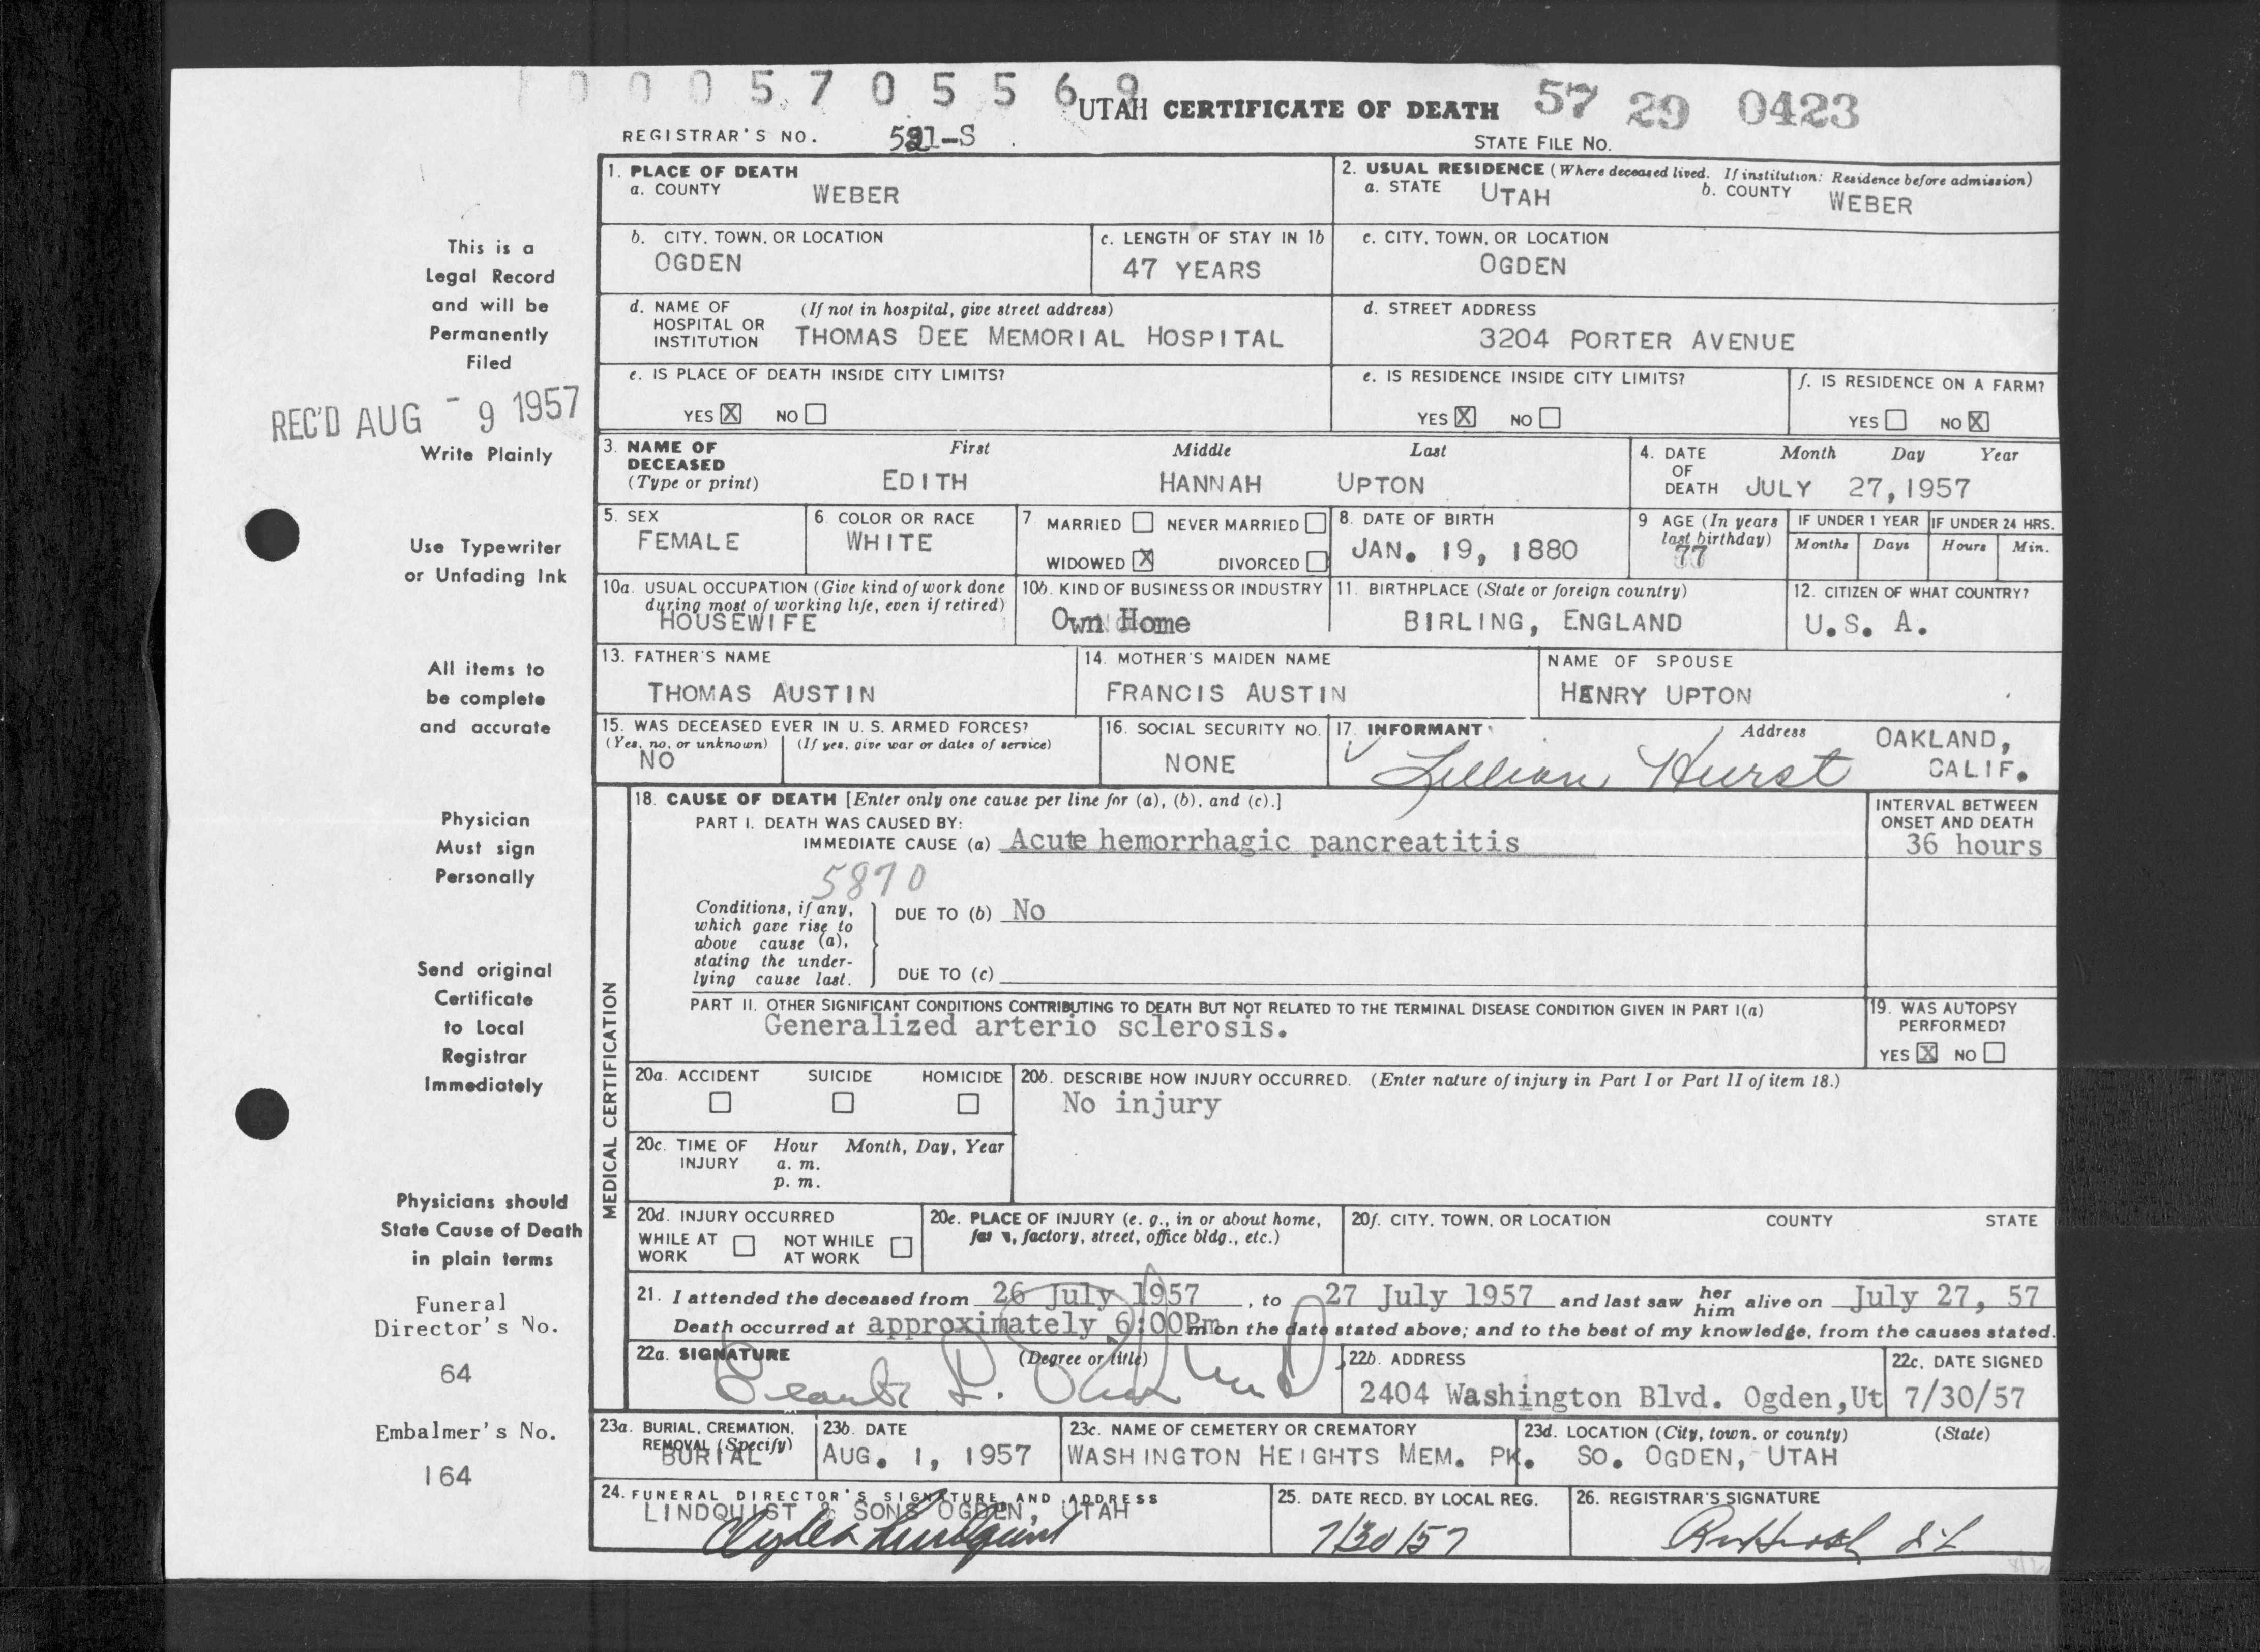 0 0 0 5 7 0 5 5 6 9
UTAH CERTIFICATE OF DEATH 57 29 0423
REGISTRAR'S NO. 521-S
STATE FILE NO.
1. PLACE OF DEATH
a. COUNTY WEBER
2. USUAL RESIDENCE (Where deceased lived. If institution: Residence before admission)
a. STATE UTAH b. COUNTY WEBER
b. CITY, TOWN, OR LOCATION
OGDEN
c. LENGTH OF STAY IN 1b
47 YEARS
c. CITY, TOWN, OR LOCATION
OGDEN
d. NAME OF HOSPITAL OR INSTITUTION (If not in hospital, give street address)
THOMAS DEE MEMORIAL HOSPITAL
d. STREET ADDRESS
3204 PORTER AVENUE
e. IS PLACE OF DEATH INSIDE CITY LIMITS?
YES X NO
e. IS RESIDENCE INSIDE CITY LIMITS?
YES X NO
f. IS RESIDENCE ON A FARM?
YES NO X
3. NAME OF DECEASED (Type or print)
First Middle Last
EDITH HANNAH UPTON
4. DATE OF DEATH
Month Day Year
JULY 27, 1957
5. SEX
FEMALE
6. COLOR OR RACE
WHITE
7. MARRIED NEVER MARRIED
WIDOWED X DIVORCED
8. DATE OF BIRTH
JAN. 19, 1880
9 AGE (In years last birthday)
77
IF UNDER 1 YEAR
Months Days
IF UNDER 24 HRS.
Hours Min.
10a. USUAL OCCUPATION (Give kind of work done during most of working life, even if retired)
HOUSEWIFE
10b. KIND OF BUSINESS OR INDUSTRY
Own Home
11. BIRTHPLACE (State or foreign country)
BIRLING, ENGLAND
12. CITIZEN OF WHAT COUNTRY?
U.S. A.
13. FATHER'S NAME
THOMAS AUSTIN
14. MOTHER'S MAIDEN NAME
FRANCIS AUSTIN
NAME OF SPOUSE
HENRY UPTON
15. WAS DECEASED EVER IN U. S. ARMED FORCES?
(Yes, no, or unknown) (If yes, give war or dates of service)
NO
16. SOCIAL SECURITY NO.
NONE
17. INFORMANT Address
Lillian Hurst OAKLAND, CALIF.
MEDICAL CERTIFICATION
18. CAUSE OF DEATH [Enter only one cause per line for (a), (b), and (c).]
PART I. DEATH WAS CAUSED BY:
IMMEDIATE CAUSE (a) Acute hemorrhagic pancreatitis
INTERVAL BETWEEN ONSET AND DEATH
36 hours
5870
Conditions, if any, which gave rise to above cause (a), stating the underlying cause last.
DUE TO (b) No
DUE TO (c)
PART II. OTHER SIGNIFICANT CONDITIONS CONTRIBUTING TO DEATH BUT NOT RELATED TO THE TERMINAL DISEASE CONDITION GIVEN IN PART I(a)
Generalized arterio sclerosis.
19. WAS AUTOPSY PERFORMED?
YES X NO
20a. ACCIDENT SUICIDE HOMICIDE
20b. DESCRIBE HOW INJURY OCCURRED. (Enter nature of injury in Part I or Part II of item 18.)
No injury
20c. TIME OF INJURY Hour Month, Day, Year
a. m.
p. m.
20d. INJURY OCCURRED
WHILE AT WORK NOT WHILE AT WORK
20e. PLACE OF INJURY (e. g., in or about home, farm, factory, street, office bldg., etc.)
20f. CITY, TOWN, OR LOCATION COUNTY STATE
21. I attended the deceased from 26 July 1957, to 27 July 1957 and last saw her him alive on July 27, 57
Death occurred at approximately 6:00Pm m on the date stated above; and to the best of my knowledge, from the causes stated.
22a. SIGNATURE (Degree or title)
22b. ADDRESS
2404 Washington Blvd. Ogden,Ut
22c. DATE SIGNED
7/30/57
23a. BURIAL, CREMATION, REMOVAL (Specify)
BURIAL
23b. DATE
AUG. 1, 1957
23c. NAME OF CEMETERY OR CREMATORY
WASHINGTON HEIGHTS MEM. PK.
23d. LOCATION (City, town, or county) (State)
SO. OGDEN, UTAH
24. FUNERAL DIRECTOR'S SIGNATURE AND ADDRESS
LINDQUIST & SONS OGDEN, UTAH
25. DATE RECD. BY LOCAL REG.
7/30/57
26. REGISTRAR'S SIGNATURE
This is a
Legal Record
and will be
Permanently
Filed
REC'D AUG - 9 1957
Write Plainly
Use Typewriter
or Unfading Ink
All items to
be complete
and accurate
Physician
Must sign
Personally
Send original
Certificate
to Local
Registrar
Immediately
Physicians should
State Cause of Death
in plain terms
Funeral
Director's No.
64
Embalmer's No.
164